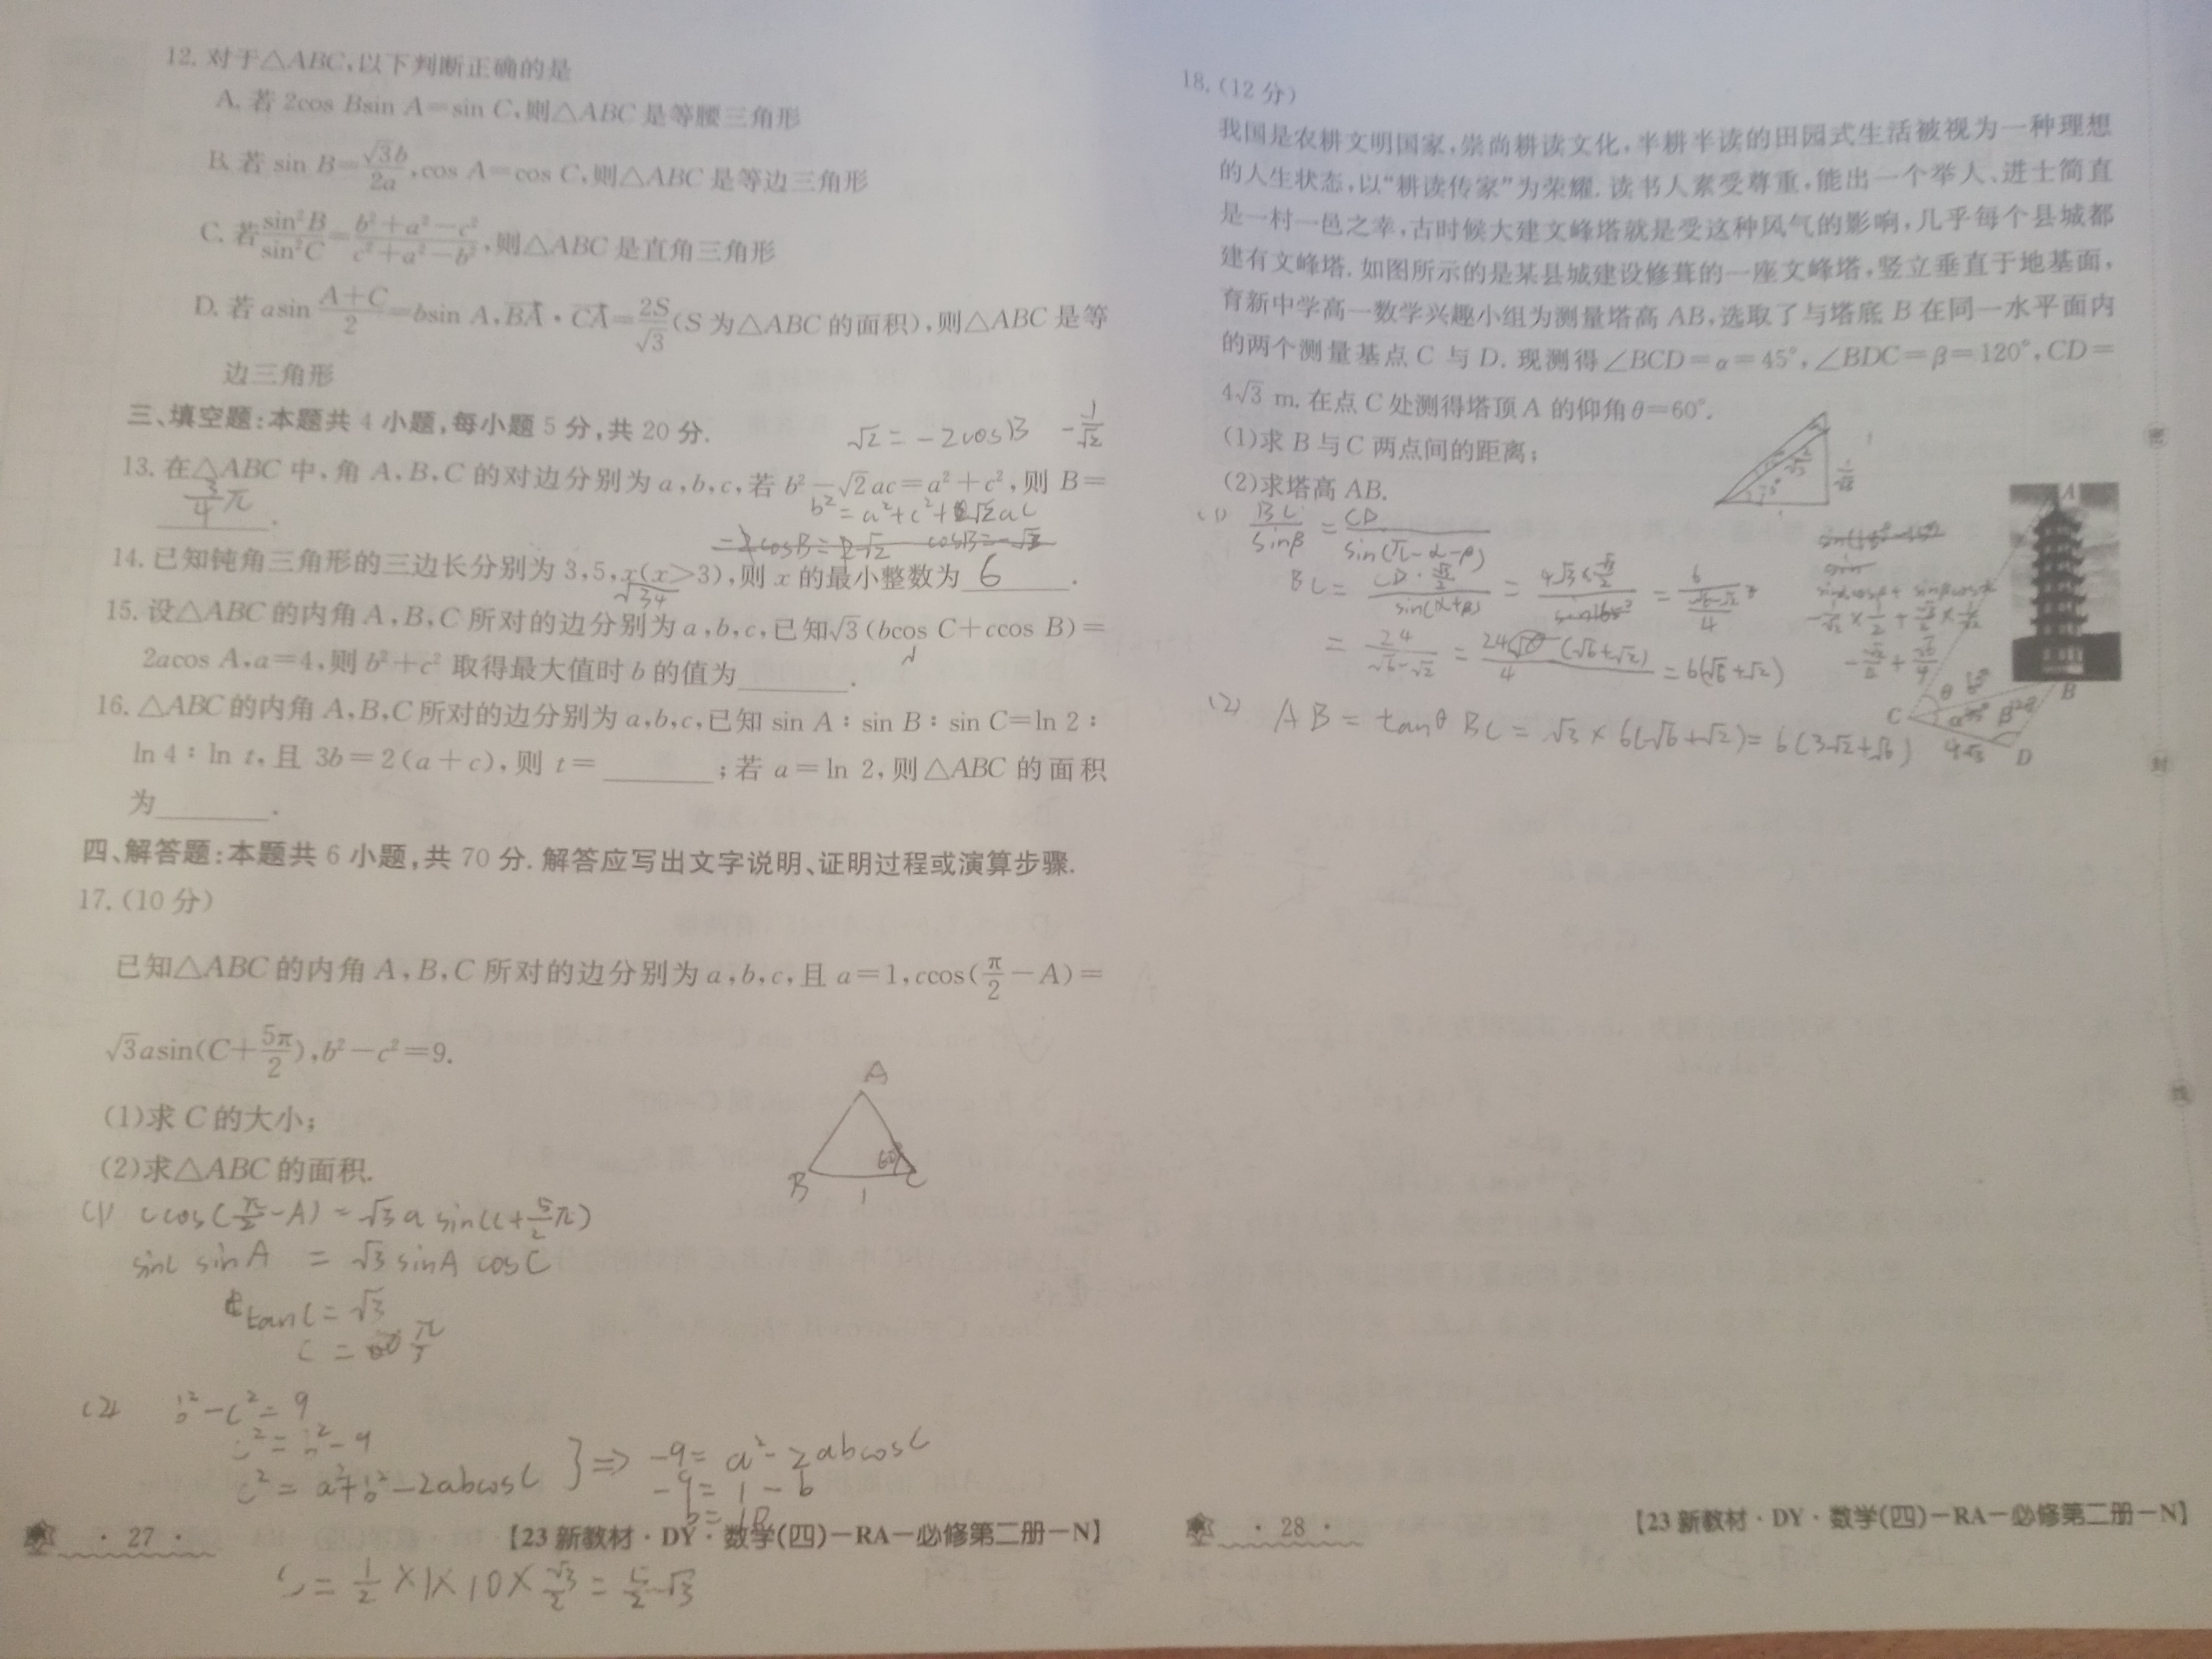 12. 对于△ABC,以下判断正确的是
A. 若 2cos Bsin A=sin C,则△ABC 是等腰三角形
B. 若 sin B=√3b/2a,cos A=cos C,则△ABC 是等边三角形
C. 若 sin²B/sin²C=(b²+a²-c²)/(c²+a²-b²),则△ABC 是直角三角形
D. 若 asin (A+C)/2=bsin A,BA·CA=2S/√3(S 为△ABC 的面积),则△ABC 是等
边三角形
三、填空题:本题共 4 小题,每小题 5 分,共 20 分.
√2=-2cosB -1/√2
13. 在△ABC 中,角 A,B,C 的对边分别为 a,b,c,若 b²-√2ac=a²+c²,则 B=
3/4π.
b²=a²+c²+√2ac
14. 已知钝角三角形的三边长分别为 3,5,x(x>3),则 x 的最小整数为 6.
√34
15. 设△ABC 的内角 A,B,C 所对的边分别为 a,b,c,已知√3(bcos C+ccos B)=
2acos A,a=4,则 b²+c² 取得最大值时 b 的值为________.
16. △ABC 的内角 A,B,C 所对的边分别为 a,b,c,已知 sin A:sin B:sin C=ln 2:
ln 4:ln t,且 3b=2(a+c),则 t=________;若 a=ln 2,则△ABC 的面积
为________.
四、解答题:本题共 6 小题,共 70 分. 解答应写出文字说明、证明过程或演算步骤.
17. (10 分)
已知△ABC 的内角 A,B,C 所对的边分别为 a,b,c,且 a=1,ccos(π/2-A)=
√3asin(C+5π/2),b²-c²=9.
(1)求 C 的大小;
(2)求△ABC 的面积.
A
B 1 C
(1) ccos(π/2-A)=√3a sin(C+5/2π)
sinC sinA = √3 sinA cosC
tanC=√3
C=π/3
(2) b²-c²=9
c²=b²-9
c²=a²+b²-2abcosC }⇒ -9=a²-2abcosC
-9=1-b
b=10
· 27 · 【23 新教材·DY·数学(四)-RA-必修第二册-N】
S=1/2×1×10×√3/2=5/2√3
18. (12 分)
我国是农耕文明国家,崇尚耕读文化,半耕半读的田园式生活被视为一种理想
的人生状态,以“耕读传家”为荣耀. 读书人素受尊重,能出一个举人、进士简直
是一村一邑之幸,古时候大建文峰塔就是受这种风气的影响,几乎每个县城都
建有文峰塔. 如图所示的是某县城建设修葺的一座文峰塔,竖立垂直于地基面,
育新中学高一数学兴趣小组为测量塔高 AB,选取了与塔底 B 在同一水平面内
的两个测量基点 C 与 D. 现测得∠BCD=α=45°,∠BDC=β=120°,CD=
4√3 m. 在点 C 处测得塔顶 A 的仰角θ=60°.
(1)求 B 与 C 两点间的距离;
(2)求塔高 AB.
(1) BC/sinβ=CD/sin(π-α-β)
BC=CD·√3/2/sin(α+β)=4√3×√3/2/sin165°=6/((√6-√2)/4)
=24/(√6-√2)=24(√6+√2)/4=6(√6+√2)
sinαcosβ+sinβcosα
-1/√2×1/2+√3/2×1/√2
(2) AB=tanθ BC=√3×6(√6+√2)=6(3√2+√6)
A
B
C θ α β
4√3 D
· 28 · 【23 新教材·DY·数学(四)-RA-必修第二册-N】
密
封
线